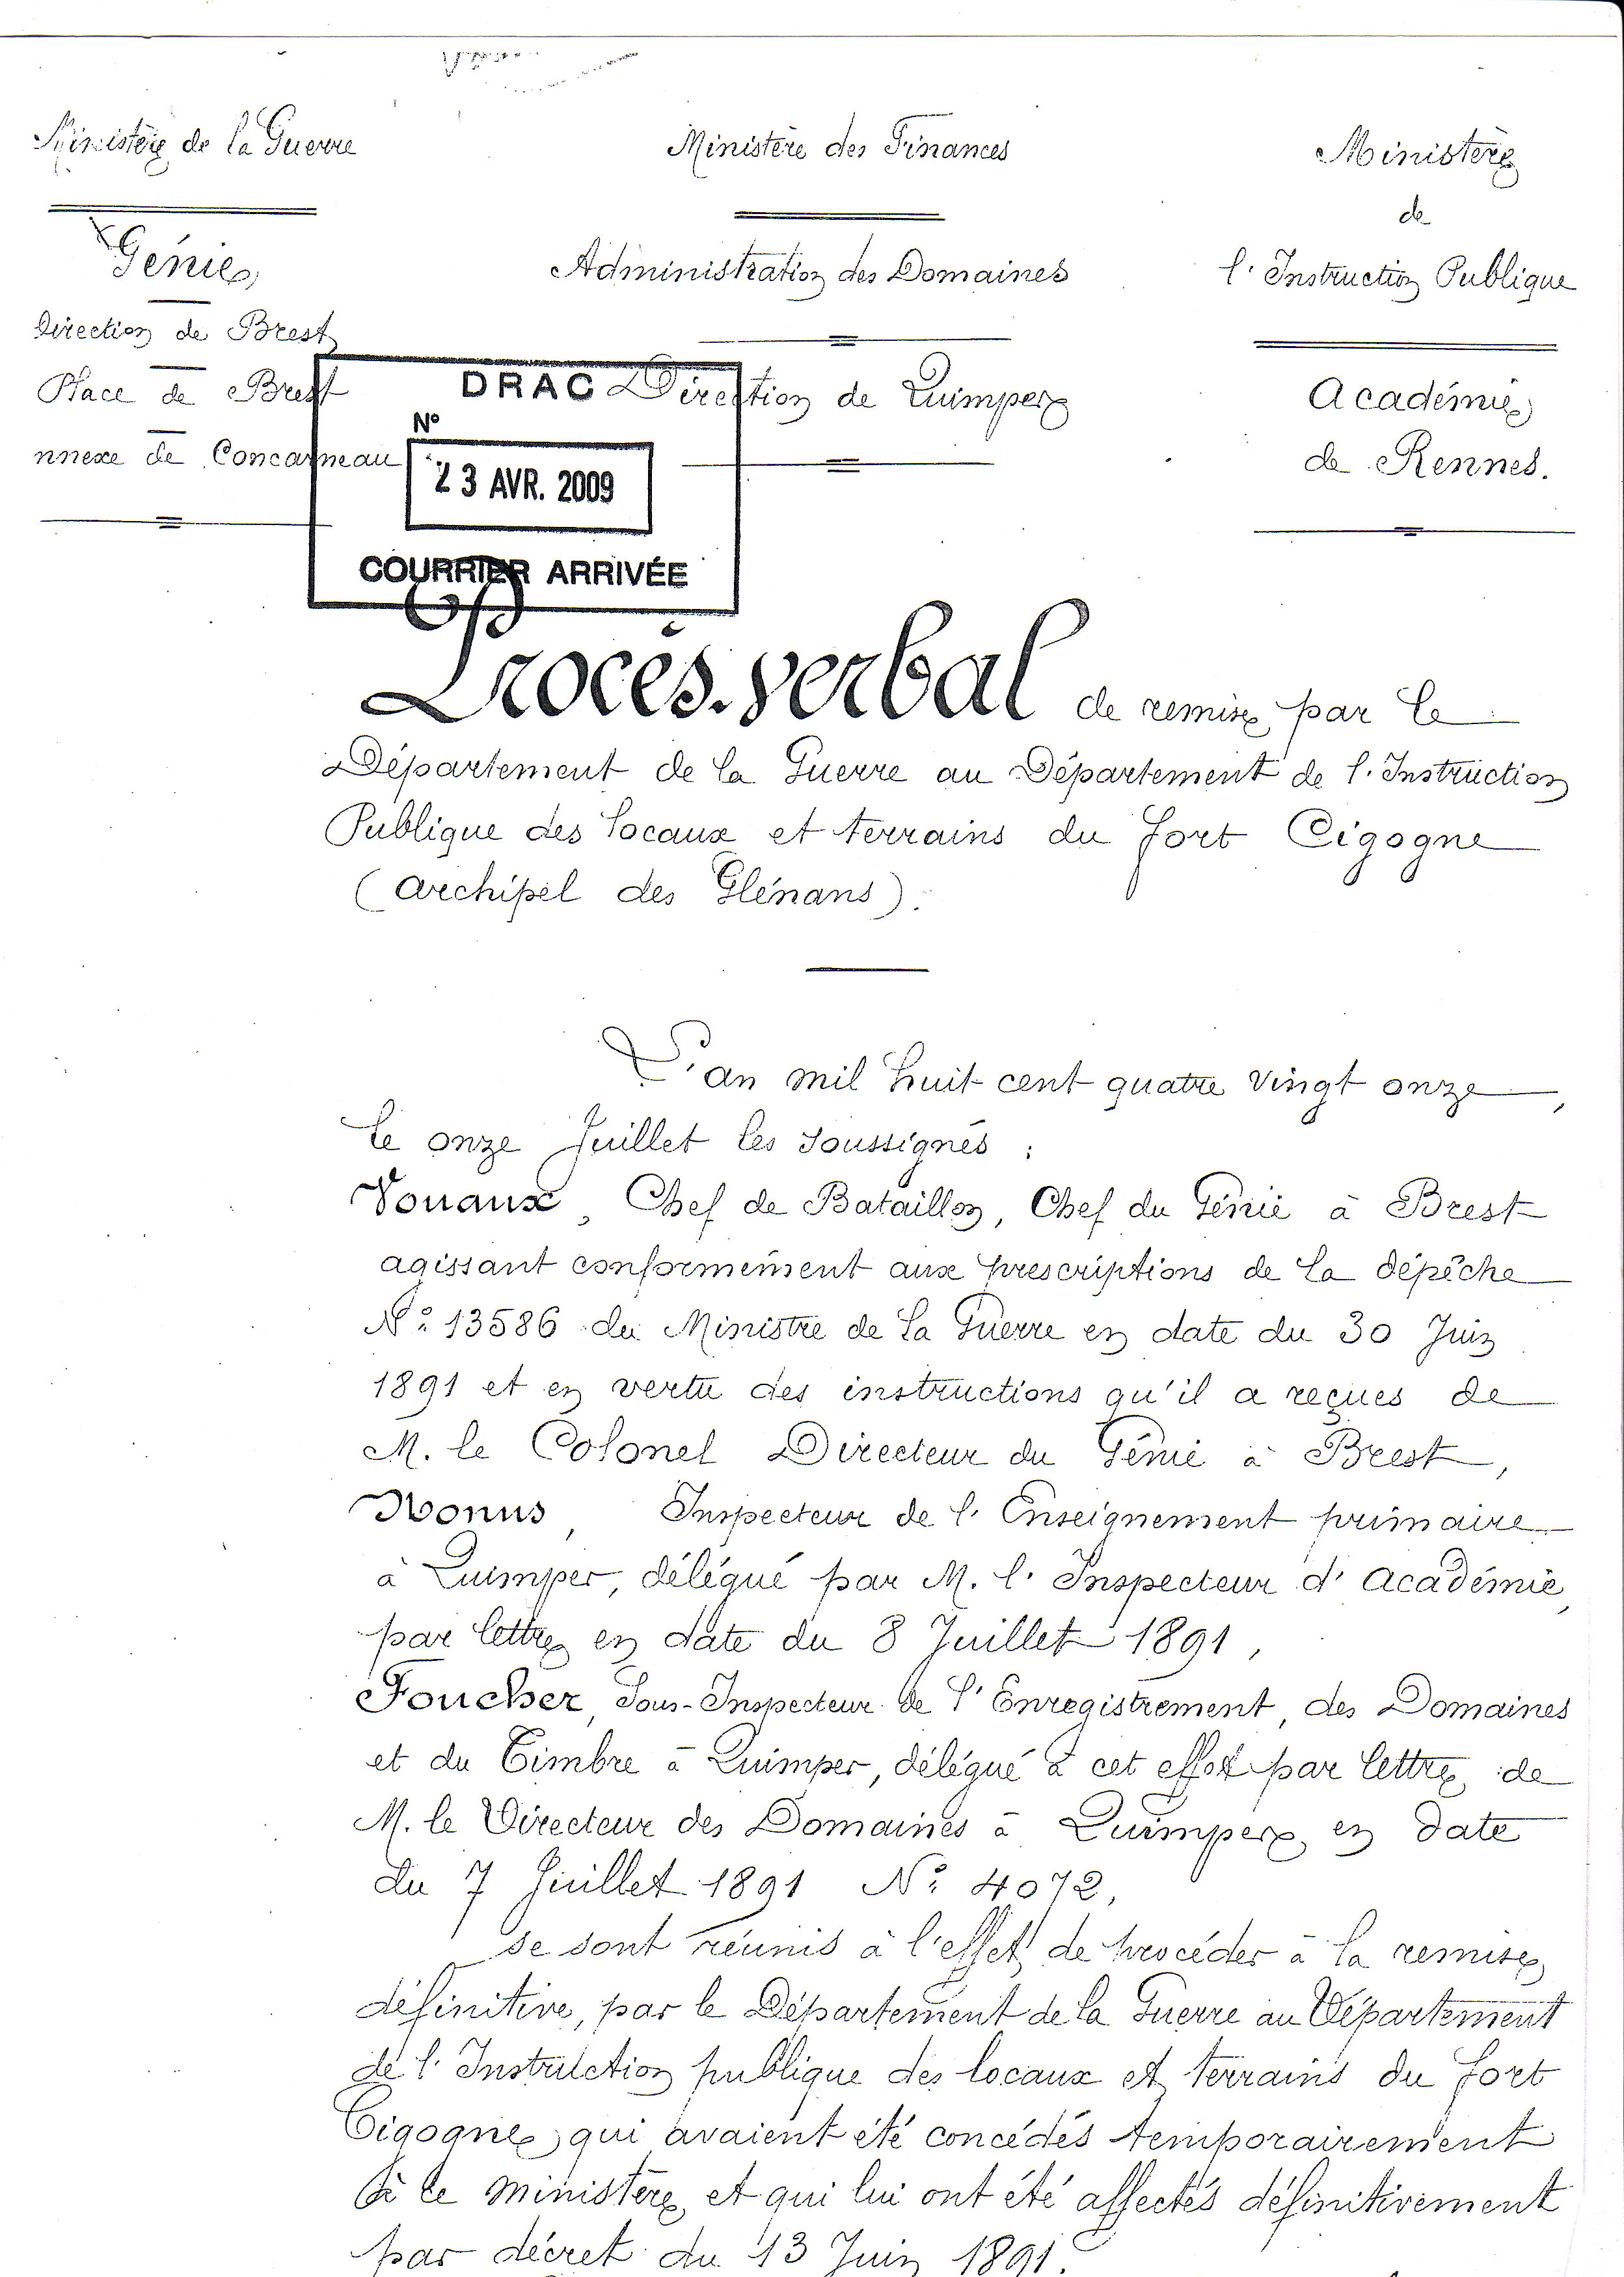 Ministère de la Guerre
Génie
Direction de Brest
Place de Brest
nnexe de Concarneau
Ministère des Finances
Administration des Domaines
Direction de Quimper
Ministère
de
l'Instruction Publique
Académie
de Rennes.
DRAC
N°
23 AVR. 2009
COURRIER ARRIVÉE
Procès-verbal de remise par le
Département de la Guerre au Département de l'Instruction
Publique des locaux et terrains du fort Cigogne
(archipel des Glénans).
L'an mil huit cent quatre vingt onze,
le onze Juillet les soussignés :
Vouaux, Chef de Bataillon, Chef du Génie à Brest
agissant conformément aux prescriptions de la dépêche
N° 13586 du Ministre de la Guerre en date du 30 Juin
1891 et en vertu des instructions qu'il a reçues de
M. le Colonel Directeur du Génie à Brest,
Nonus, Inspecteur de l'Enseignement primaire
à Quimper, délégué par M. l'Inspecteur d'académie,
par lettre en date du 8 Juillet 1891,
Foucher, Sous-Inspecteur de l'Enregistrement, des Domaines
et du Timbre à Quimper, délégué à cet effet par lettre de
M. le Directeur des Domaines à Quimper, en date
du 7 Juillet 1891 N° 4072,
se sont réunis à l'effet de procéder à la remise
définitive, par le Département de la Guerre au Département
de l'Instruction publique des locaux et terrains du fort
Cigogne, qui avaient été concédés temporairement
à ce ministère et qui lui ont été affectés définitivement
par décret du 13 Juin 1891.